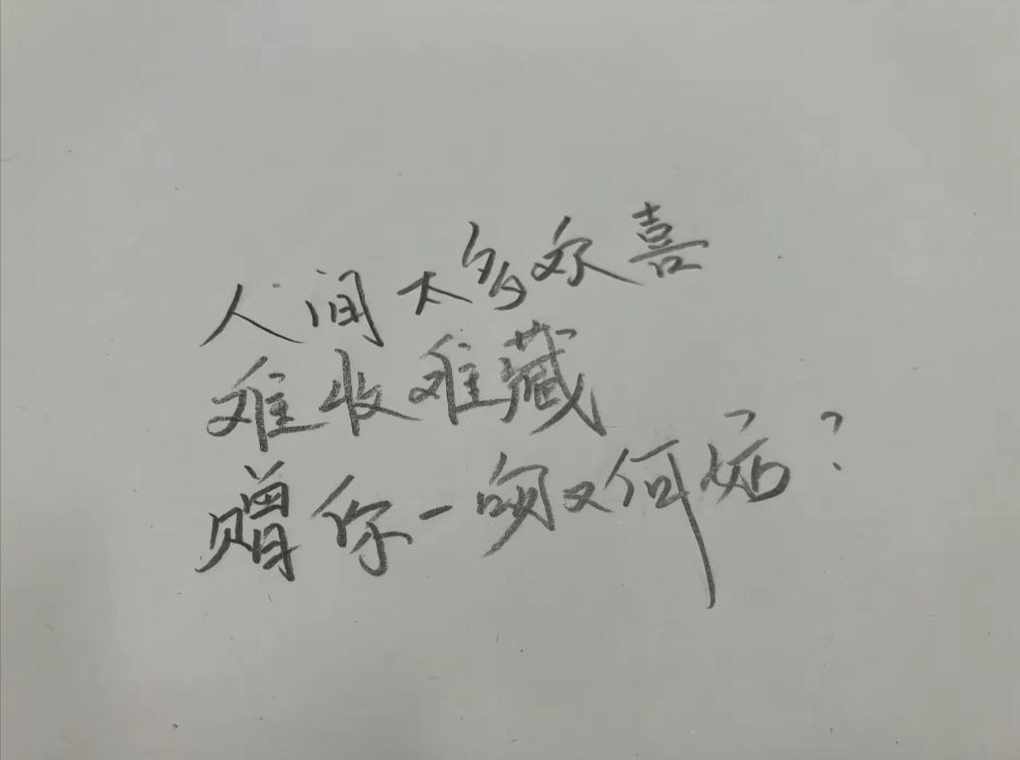 人间太多欢喜
难收难藏
赠你一吻又何妨？